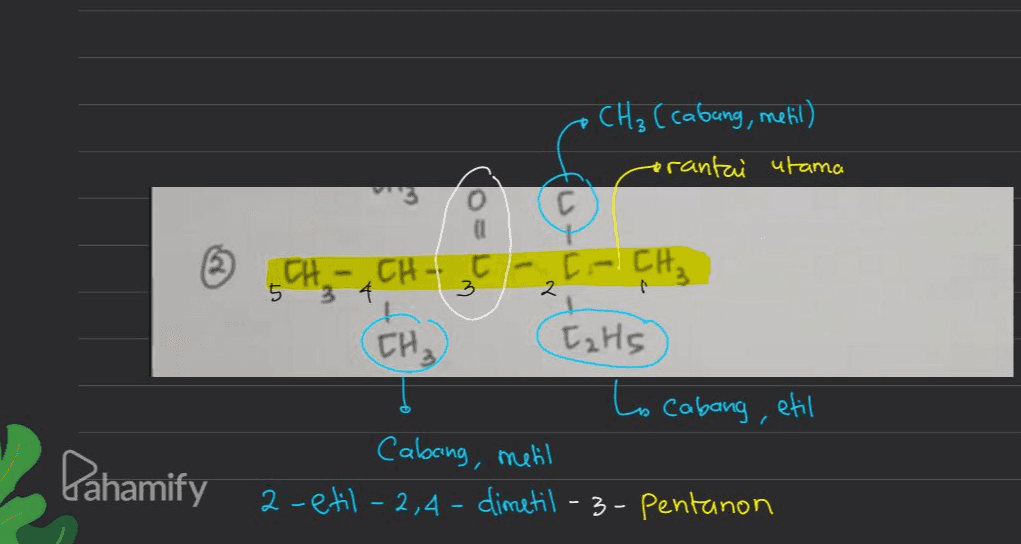 CH₃ (cabang, metil)
rantai utama
O C
|| |
② CH₃ - CH - C - C - CH₃
5 4 3 2 1
| |
CH₃ C₂H5
Cabang, etil
Cabang, metil
2 - etil - 2,4 - dimetil - 3 - Pentanon
Pahamify